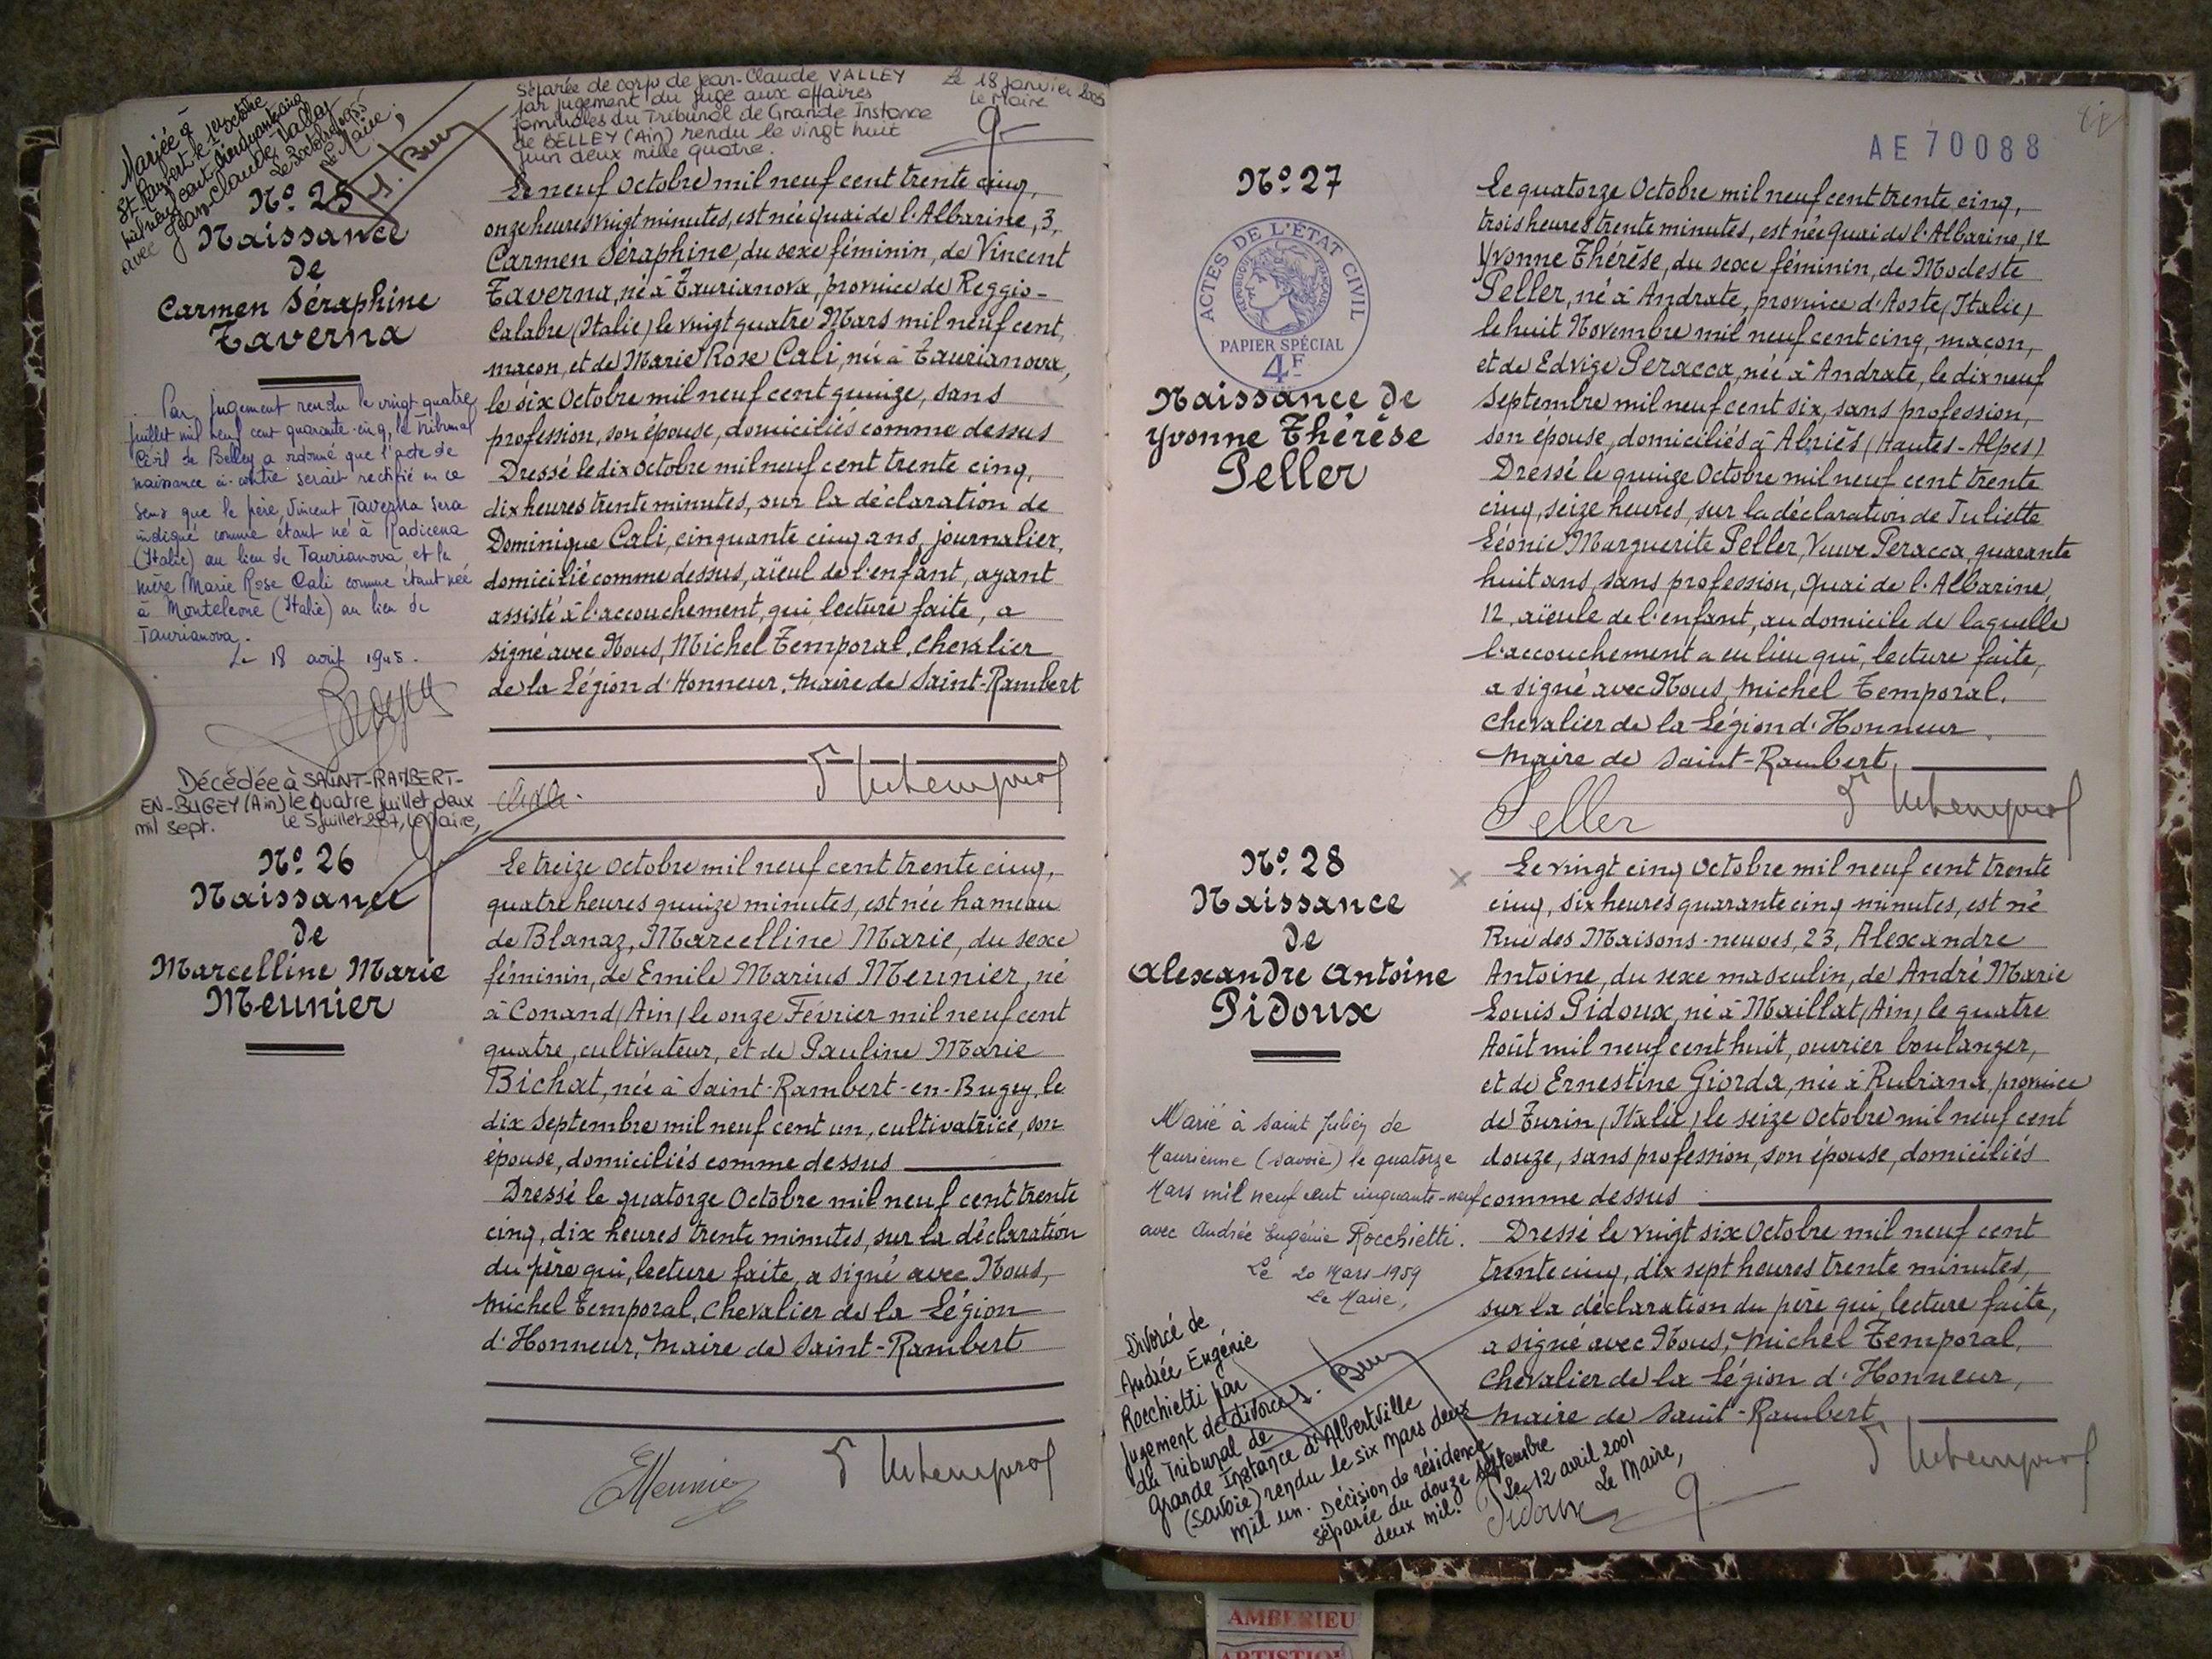 Mariée à
St Rambert le 1er octobre
mil neuf cent cinquante cinq
avec Jean-Claude Valley
Le 3 octobre 1955
Le Maire,
Séparée de corps de Jean-Claude VALLEY
par jugement du juge aux affaires
familiales du Tribunal de Grande Instance
de BELLEY (Ain) rendu le vingt huit
juin deux mille quatre.
Le 18 janvier 2005
Le Maire
No. 25
Naissance
de
Carmen Séraphine
Taverna
Par jugement rendu le vingt quatre
juillet mil neuf cent quarante-cinq, le Tribunal
Civil de Belley a ordonné que l'acte de
naissance ci-contre serait rectifié en ce
sens que le père, Vincent Taverna sera
indiqué comme étant né à Radicena
(Italie) au lieu de Taurianova et la
mère Marie Rose Cali comme étant née
à Monteleone (Italie) au lieu de
Taurianova.
Le 18 août 1945.
Le neuf Octobre mil neuf cent trente cinq,
onze heures vingt minutes, est née Quai de l'Albarine, 3,
Carmen Séraphine, du sexe féminin, de Vincent
Taverna, né à Taurianova, province de Reggio-
Calabre (Italie) le vingt quatre Mars mil neuf cent,
maçon, et de Marie Rose Cali, née à Taurianova,
le six Octobre mil neuf cent quinze, sans
profession, son épouse, domiciliés comme dessus
Dressé le dix Octobre mil neuf cent trente cinq,
dix heures trente minutes, sur la déclaration de
Dominique Cali, cinquante cinq ans, journalier,
domicilié comme dessus, aïeul de l'enfant, ayant
assisté à l'accouchement, qui, lecture faite, a
signé avec Nous, Michel Temporal, Chevalier
de la Légion d'Honneur, Maire de Saint-Rambert
Décédée à SAINT-RAMBERT-
EN-BUGEY (Ain) le quatre juillet deux
mil sept. Le 5 juillet 2007, Le Maire,
No. 26
Naissance
de
Marcelline Marie
Meunier
Le treize Octobre mil neuf cent trente cinq,
quatre heures quinze minutes, est née hameau
de Blanaz, Marcelline Marie, du sexe
féminin, de Emile Marius Meunier, né
à Conand (Ain) le onze Février mil neuf cent
quatre, cultivateur, et de Pauline Marie
Bichat, née à Saint-Rambert-en-Bugey, le
dix Septembre mil neuf cent un, cultivatrice, son
épouse, domiciliés comme dessus
Dressé le quatorze Octobre mil neuf cent trente
cinq, dix heures trente minutes, sur la déclaration
du père qui, lecture faite, a signé avec Nous,
Michel Temporal, Chevalier de la Légion
d'Honneur, Maire de Saint-Rambert
EMeunier
AE 70088
No. 27
ACTES DE L'ÉTAT CIVIL
RÉPUBLIQUE FRANÇAISE
PAPIER SPÉCIAL
4F
Naissance de
Yvonne Thérèse
Peller
Le quatorze Octobre mil neuf cent trente cinq,
trois heures trente minutes, est née Quai de l'Albarine, 12
Yvonne Thérèse, du sexe féminin, de Modeste
Peller, né à Andrate, province d'Aoste (Italie)
le huit Novembre mil neuf cent cinq, maçon,
et de Edvige Peracca, née à Andrate, le dix neuf
Septembre mil neuf cent six, sans profession,
son épouse, domiciliés à Abriès (Hautes-Alpes)
Dressé le quinze Octobre mil neuf cent trente
cinq, seize heures, sur la déclaration de Juliette
Léonie Marguerite Peller, Veuve Peracca, quarante
huit ans, sans profession, Quai de l'Albarine,
12, aïeule de l'enfant, au domicile de laquelle
l'accouchement a eu lieu qui, lecture faite,
a signé avec Nous, Michel Temporal,
Chevalier de la Légion d'Honneur,
Maire de Saint-Rambert
Peller
No. 28
Naissance
de
Alexandre Antoine
Pidoux
Le vingt cinq Octobre mil neuf cent trente
cinq, six heures quarante cinq minutes, est né
Rue des Maisons-neuves, 23, Alexandre
Antoine, du sexe masculin, de André Marie
Louis Pidoux, né à Maillat (Ain) le quatre
Août mil neuf cent huit, ouvrier boulanger,
et de Ernestine Giorda, née à Rubiana, province
de Turin (Italie) le seize Octobre mil neuf cent
douze, sans profession, son épouse, domiciliés
comme dessus
Dressé le vingt six Octobre mil neuf cent
trente cinq, dix sept heures trente minutes,
sur la déclaration du père qui, lecture faite,
a signé avec Nous, Michel Temporal,
Chevalier de la Légion d'Honneur,
Maire de Saint-Rambert
Marié à Saint Julien de
Maurienne (Savoie) le quatorze
Mars mil neuf cent cinquante-neuf
avec Andrée Eugénie Rocchietti.
Le 20 Mars 1959
Le Maire,
Divorcé de
Andrée Eugénie
Rocchietti par
jugement de divorce
du Tribunal de
Grande Instance d'Albertville
(Savoie) rendu le six Mars deux
mil un. Décision de résidence
séparée du douze Septembre
deux mil.
Le 12 avril 2001
Le Maire,
Pidoux
AMBERIEU